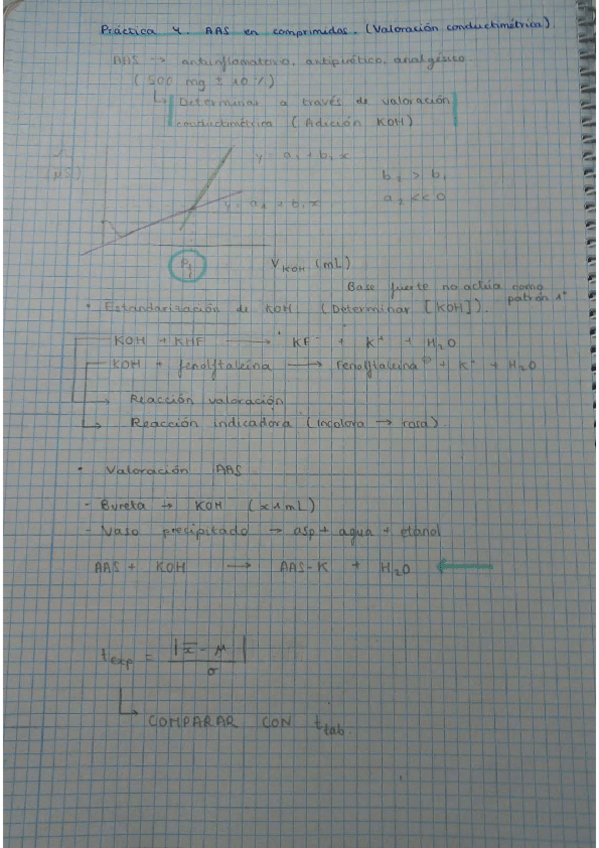 Práctica 4. AAS en comprimidos. (Valoración conductimétrica)
AAS → antiinflamatorio, antipirético, analgésico.
(500 mg ± 10 %)
Determinar a través de valoración
conductimétrica (Adición KOH)
(μS)
y = a₂ + b₂ x
b₂ > b₁
y = a₁ + b₁ x
a₂ << 0
Pf
V KOH (mL)
Base fuerte no actúa como
patrón 1º
• Estandarización de KOH. (Determinar [KOH]).
KOH + KHF → KF⁻ + K⁺ + H₂O
KOH + fenolftaleína → Fenolftaleína + K⁺ + H₂O
Reacción valoración
Reacción indicadora (Incolora → rosa)
• Valoración AAS
- Bureta → KOH (x 1 mL)
- Vaso precipitado → asp + agua + etanol
AAS + KOH → AAS-K + H₂O
t exp = |x̄ - μ| / σ
COMPARAR CON t tab.